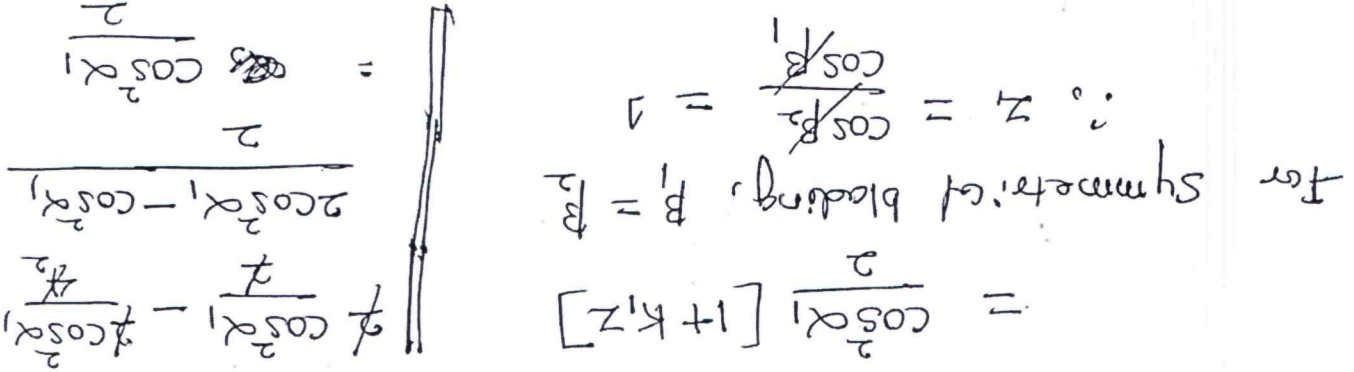 = cos²α₁/2 [1+K₁Z]
For Symmetrical blading, β₁ = β₂
∴ Z = cosβ₂/cosβ₁ = 1
2 cos²α₁/2 - 2cos²α₁/4₂
2cos²α₁ - cos²α₁/2
= cos²α₁/2